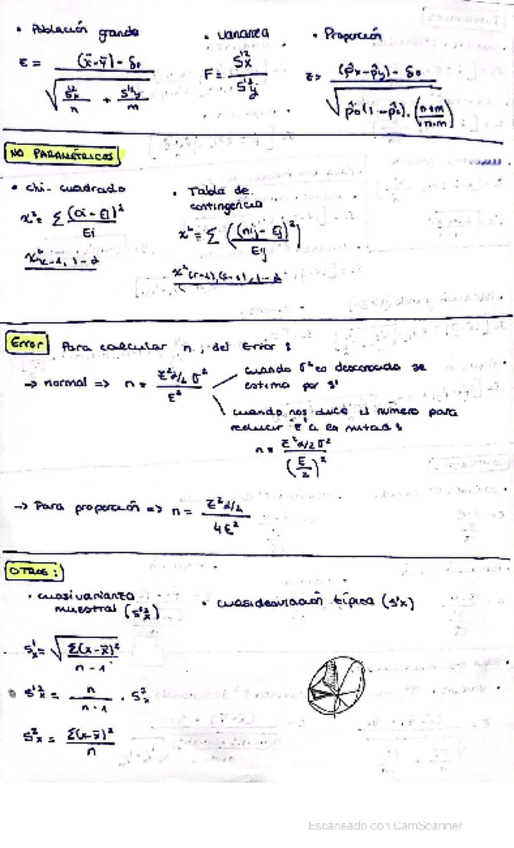 • Población grande
z = (x̄-ȳ) - δ₀ / √(s'²x/n + s'²y/m)
• varianza
F = s'²x / s'²y
• Proporción
z = (p̂x - p̂y) - δ₀ / √(p̂₀(1-p̂₀)·(n+m/n·m))
NO PARAMÉTRICOS
• Chi-cuadrado
x² = Σ (oi - Ei)² / Ei
x²k-1, 1-α
• Tabla de
contingencia
x² = Σ ((nij - Eij)² / Eij)
x²(r-1),(s-1), 1-α
Error Para calcular n, del error :
→ normal => n = z²α/2 σ² / E²
cuando σ² es desconocida se
estima por s'
cuando nos dice el número para
reducir E a la mitad :
n = z²α/2 σ² / (E/2)²
→ Para proporción => n = z²α/2 / 4E²
OTROS :
• cuasivarianza
muestral (s'²x)
• cuasidesviación típica (s'x)
s'x = √(Σ(x-x̄)² / n-1)
s'²x = n / n-1 · s²x
s²x = Σ(x-x̄)² / n
Escaneado con CamScanner